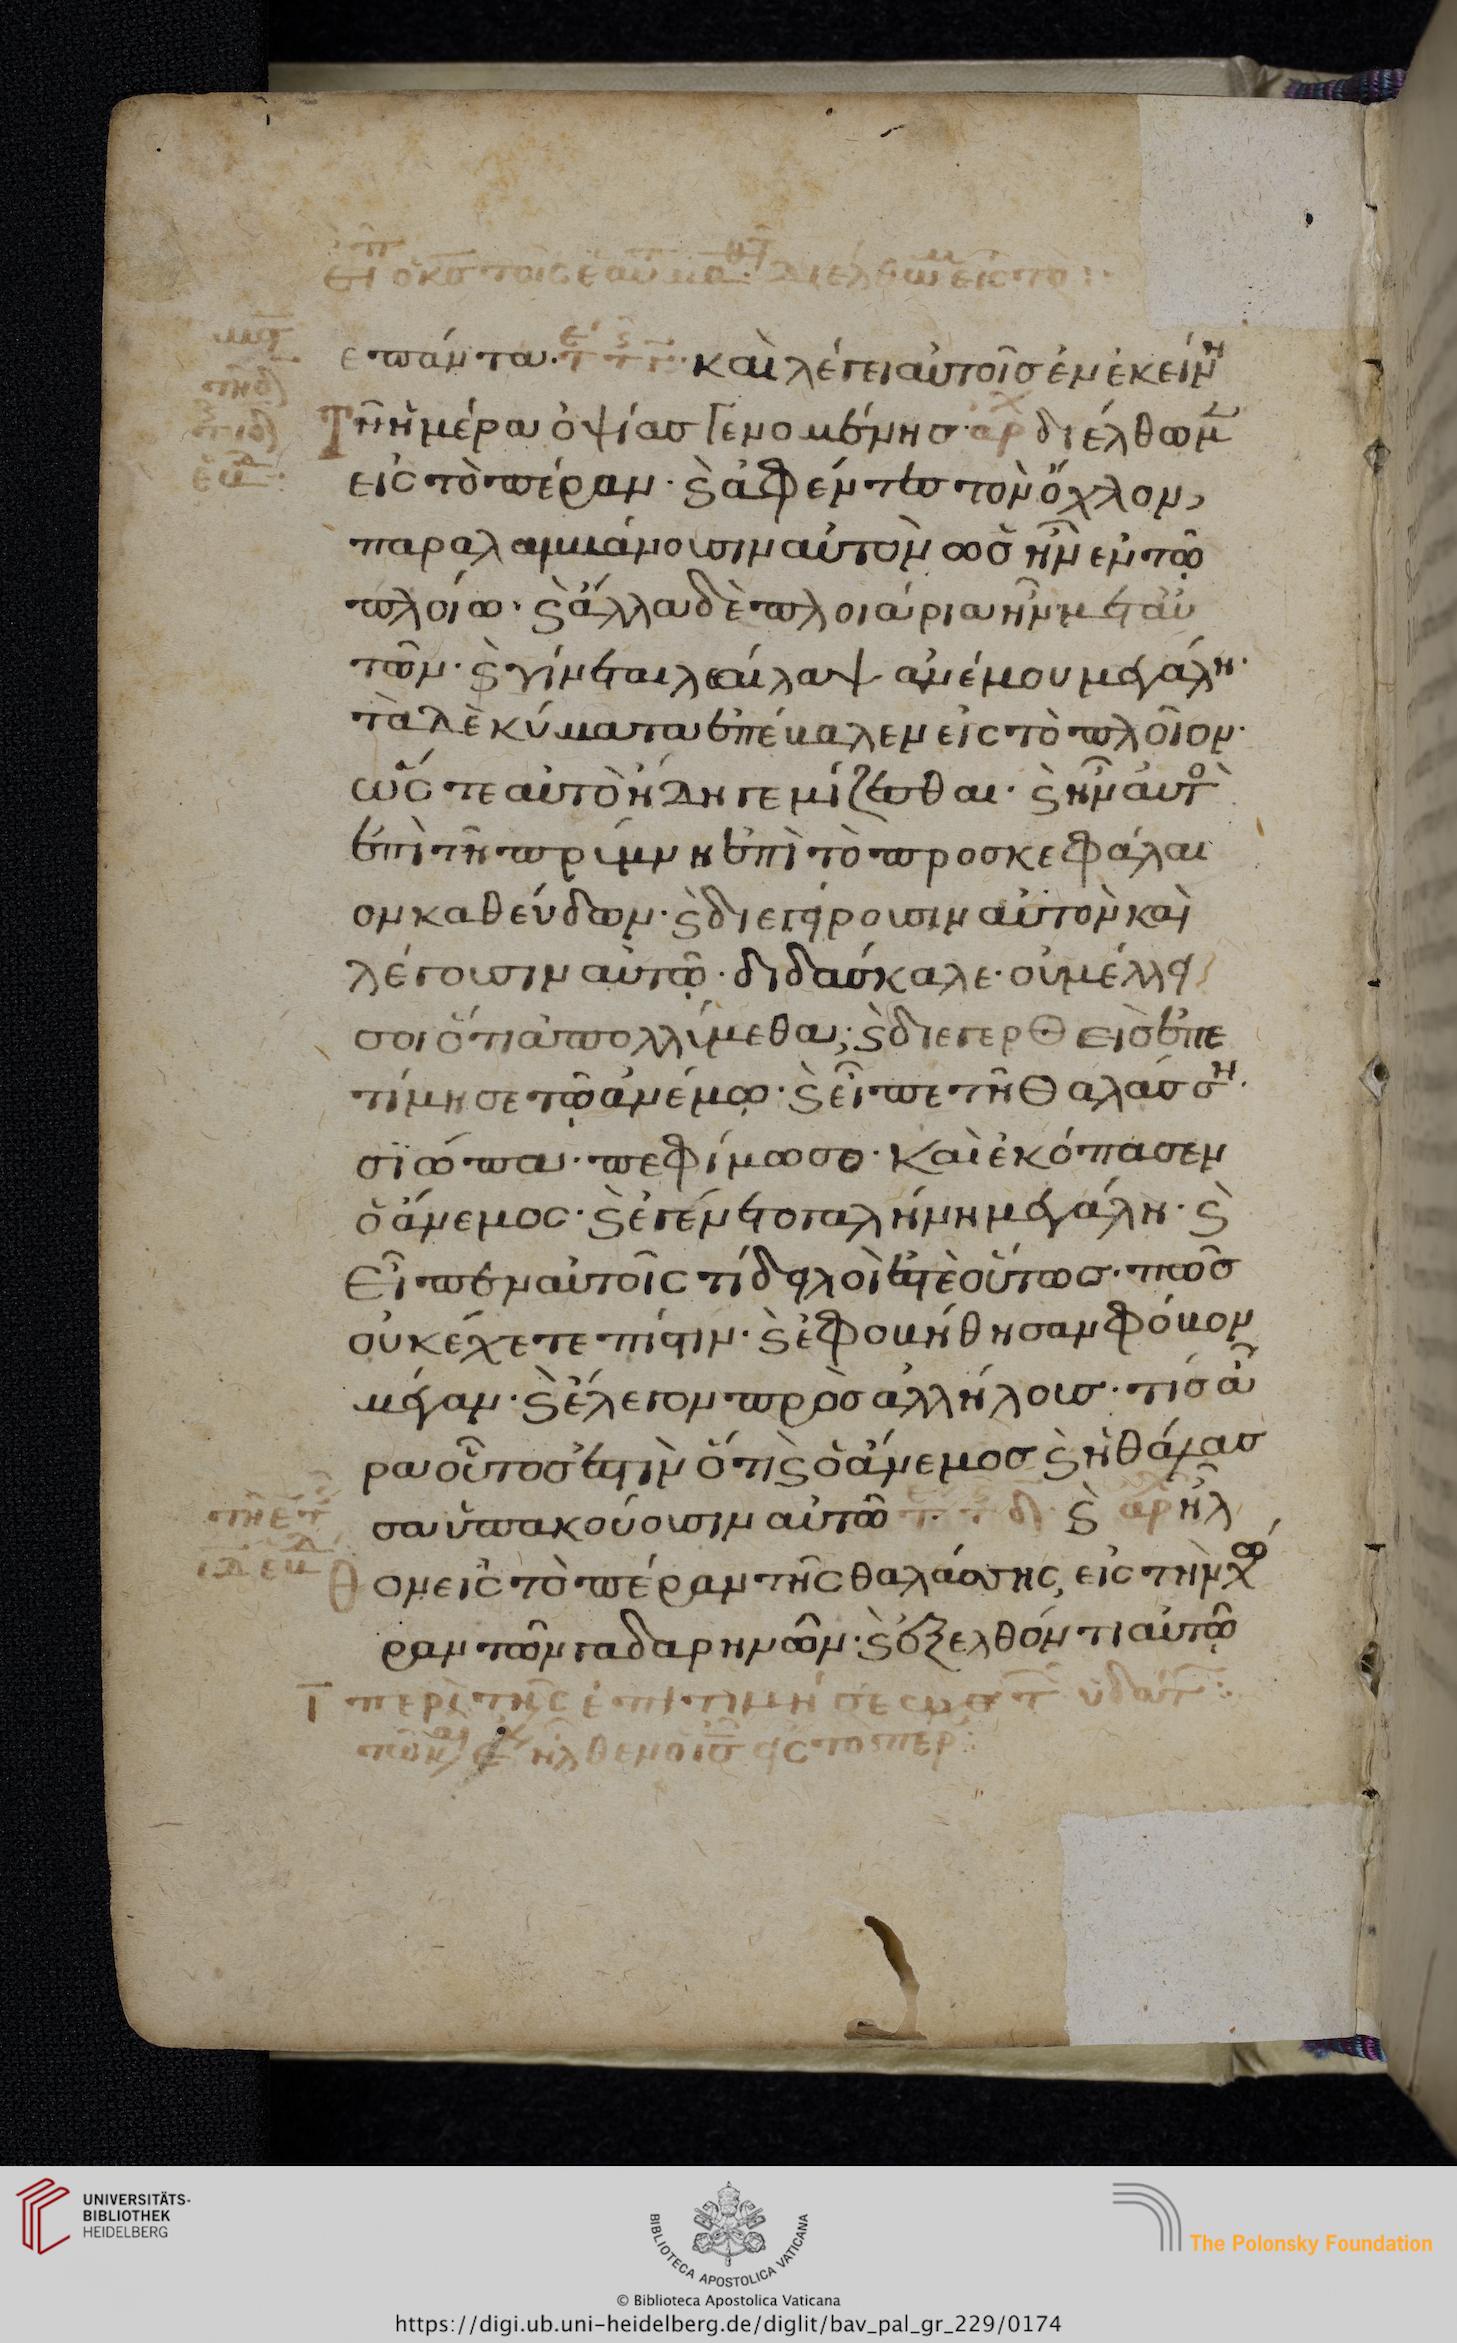 εἶπ ὁ κς τοῖς ἑαυτ μαθτ διέλθωμεν εἰς τὸ:
ε πάντα· καὶ λέγει αὐτοῖσ ἐν ἐκείνη
Τῆ ἡμέρα ὀψίασ γενομένησ· ἀρχ διέλθωμεν
εἰς τὸ πέραν· ϗ ἀφέντεσ τὸν ὄχλον,
παραλαμβάνουσιν αὐτὸν ὡσ ἦν ἐν τῶ
πλοίω· ϗ ἄλλα δὲ πλοιάρια ἦν μετ αὐ
τῶν· ϗ γίνεται λαίλαψ ἀνέμου μεγάλη·
τὰ δὲ κύματα ἐπέβαλεν εἰς τὸ πλοῖον·
ὥς τε αὐτὸ ἤδη γεμίζεσθαι· ϗ ἦν αὐτὸς
ἐπὶ τῆ πρύμνη ἐπὶ τὸ προσκεφάλαι
ον καθεύδων· ϗ διεγείρουσιν αὐτὸν καὶ
λέγουσιν αὐτῶ· διδάσκαλε· οὐ μέλλει
σοι ὅτι ἀπολλύμεθα; ϗ διεγερθεὶσ ἐπε
τίμησε τῶ ἀνέμω· ϗ εἶπε τῆ θαλάσση·
σιώπα· πεφίμωσο· Καὶ ἐκόπασεν
ὁ ἄνεμος· ϗ ἐγένετο γαλήνη μεγάλη· ϗ
εἶπεν αὐτοῖς τί δειλοὶ ἐστὲ οὕτωσ· πῶσ
οὐκ ἔχετε πίστιν· ϗ ἐφοβήθησαν φόβον
μέγαν· ϗ ἔλεγον πρὸσ ἀλλήλουσ· τίσ ἄ
ρα οὗτοσ ἐστιν ὅτι ϗ ὁ ἄνεμοσ ϗ ἡ θάλασ
σα ὑπακούουσιν αὐτῶ ϗ ἀρχ ἦλ
θον εἰς τὸ πέραν τῆς θαλάσσης, εἰς τὴν χώ
ραν τῶν γαδαρηνῶν· ϗ ἐξελθόντι αὐτῶ
Ι περὶ τῆς ἐπιτιμήσεως τ ὑδάτ:
ἦλθεν ὁ ις εἰς τὸ περ:
UNIVERSITÄTS-
BIBLIOTHEK
HEIDELBERG
BIBLIOTECA APOSTOLICA VATICANA
The Polonsky Foundation
© Biblioteca Apostolica Vaticana
https://digi.ub.uni-heidelberg.de/diglit/bav_pal_gr_229/0174